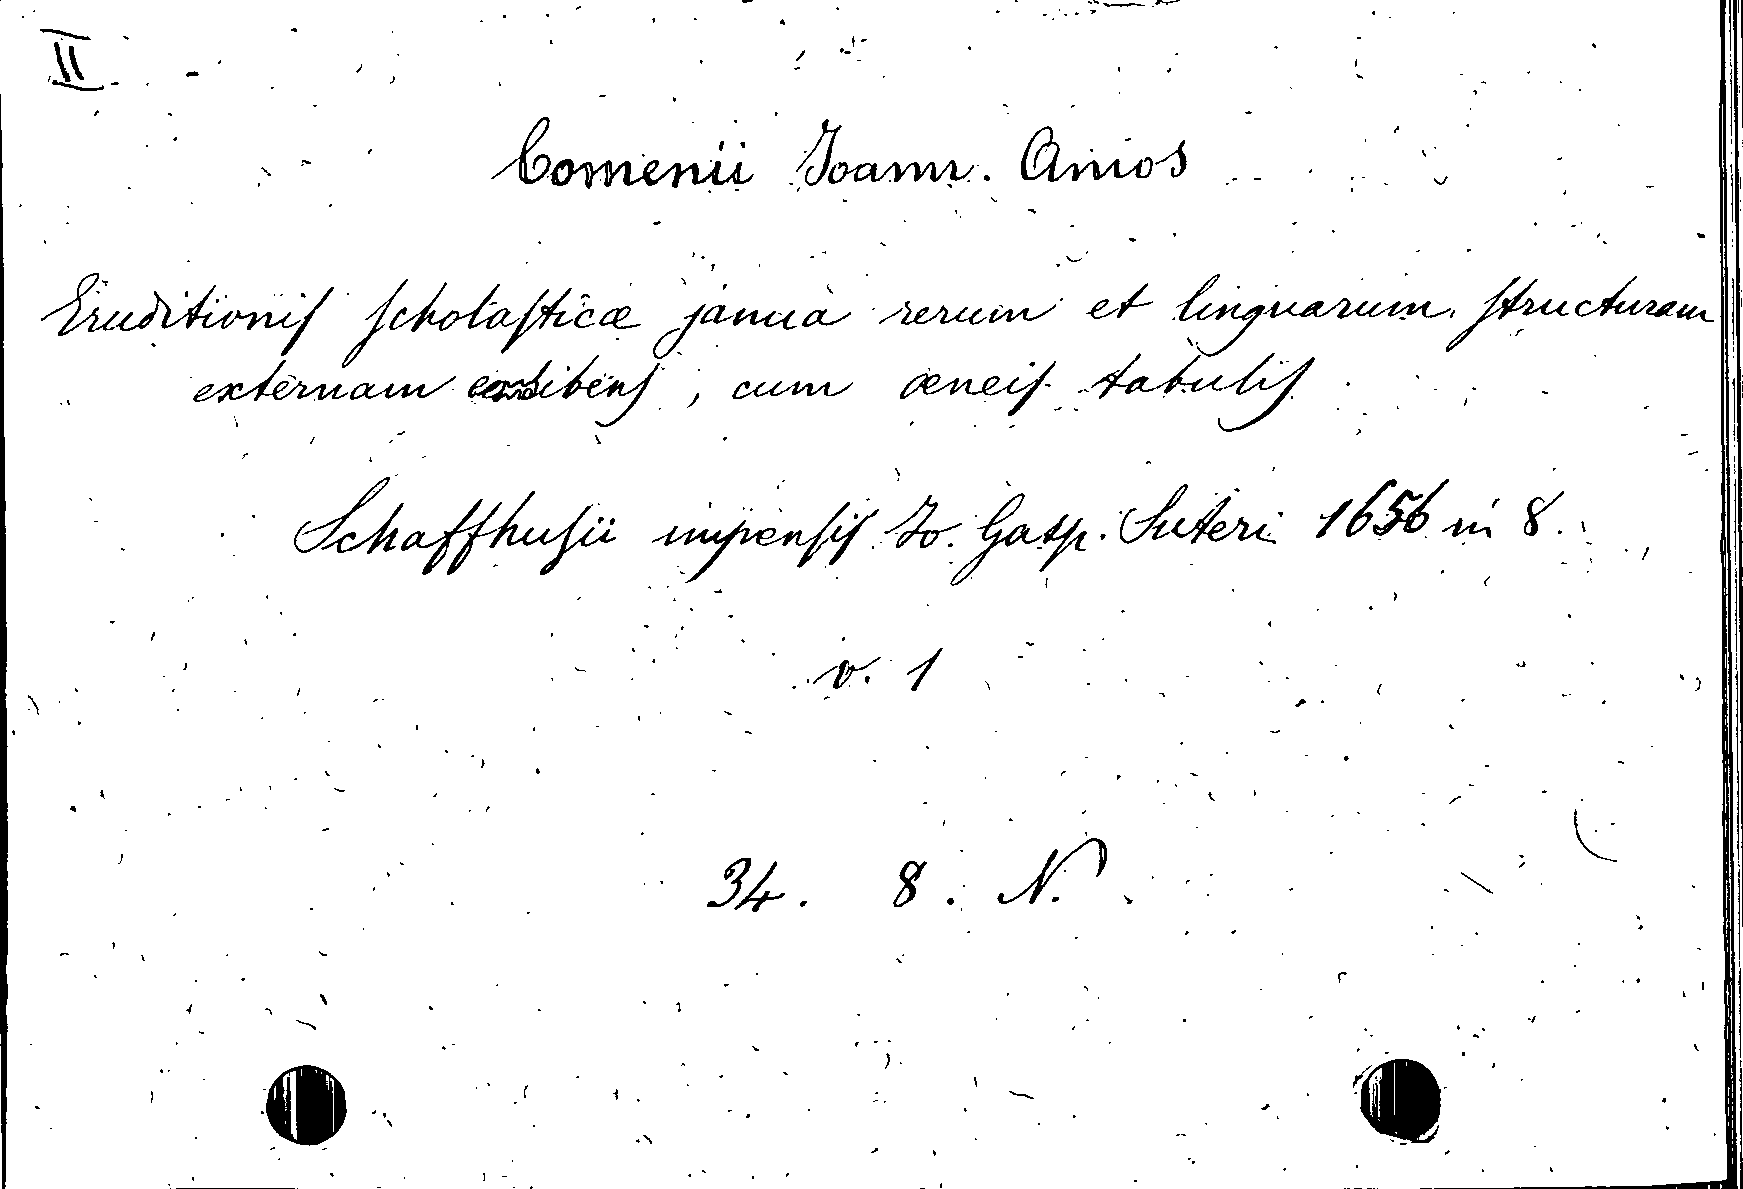 II
Comenii Joann. Amos
Eruditionis scholasticæ janua rerum et linguarum structuram
externam , cum æneis tabulis
Schaffhusii impensis Jo. Gasp. Suteri 1656 in 8.
v. 1
34. 8. N.